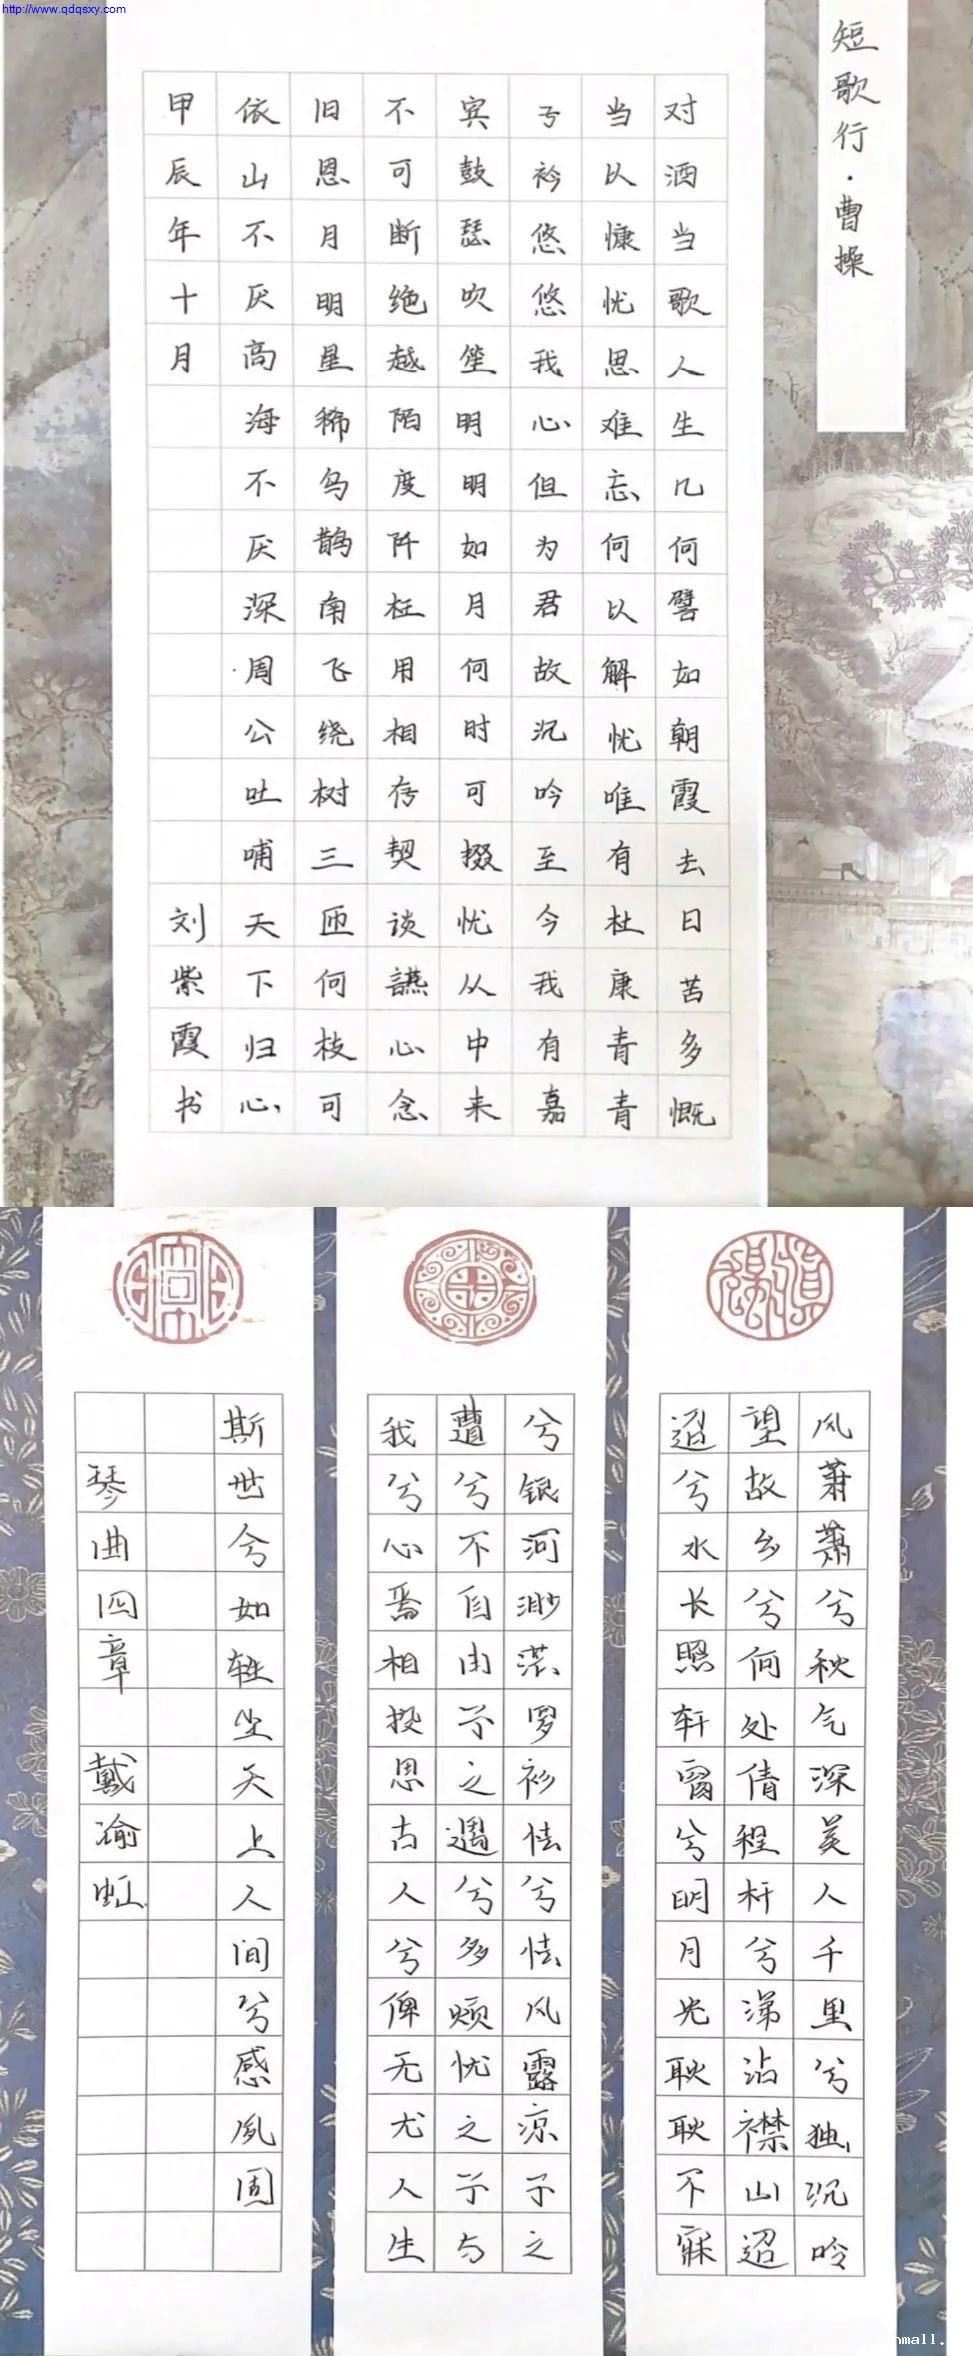 http://www.qdqsxy.com
短歌行·曹操
对酒当歌人生几何譬如朝霞去日苦多慨
当以慷忧思难忘何以解忧唯有杜康青青
子衿悠悠我心但为君故沉吟至今我有嘉
宾鼓瑟吹笙明明如月何时可掇忧从中来
不可断绝越陌度阡枉用相存契谈讌心念
旧恩月明星稀乌鹊南飞绕树三匝何枝可
依山不厌高海不厌深周公吐哺天下归心
甲辰年十月 刘紫霞书
风萧萧兮秋气深美人千里兮独沉吟
望故乡兮何处倩程杆兮涕沾襟山迢
迢兮水长照轩窗兮明月光耿耿不寐
兮银河渺茫罗衫怯兮怯风露凉子之
遭兮不自由予之遇兮多烦忧之予与
我兮心焉相投思古人兮俾无尤人生
斯世兮如轻尘天上人间兮感夙因
琴曲四章 戴渝虹